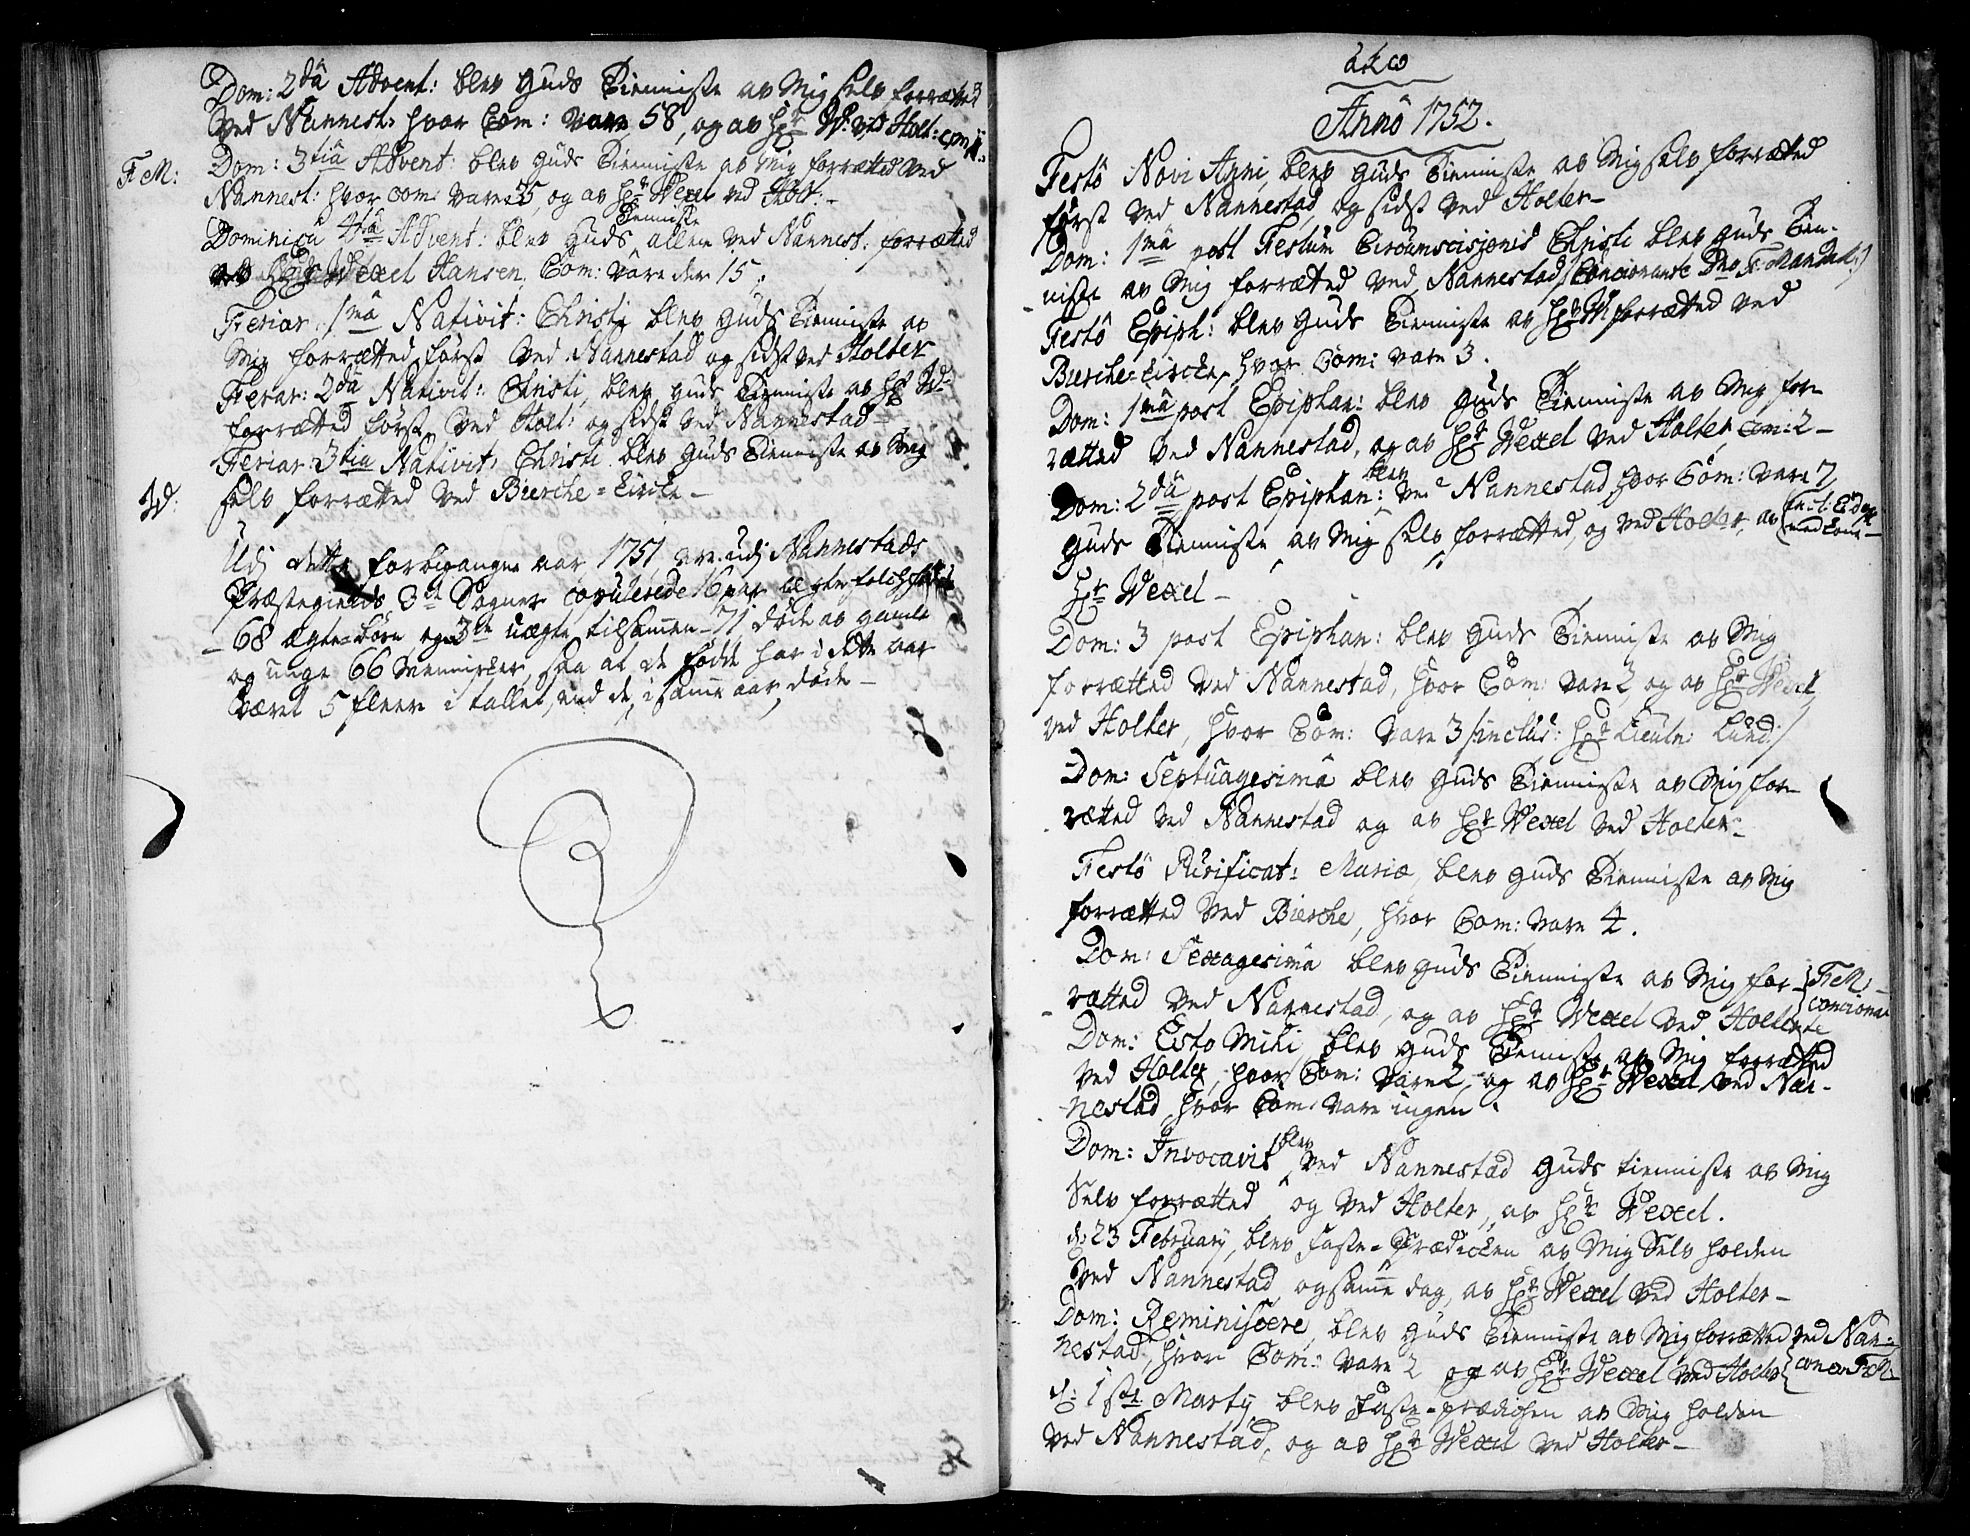 Dom: 2dâ Advent: blev Guds Tienniste av Mig selv forrætted
ved Nannest: hvor Com: vare 58, og av Hr W: ved Holt:
F: M: Dom: 3tiâ Advent: blev Guds Tienniste av Mig forrætted ved
Nannest: hvor Com: vare 25, og av Hr Wexel ved Holt: -
Dominica 4tâ Advent: blev Guds Tienniste allene ved Nannest: forrætted
av Hr Wexel Hansen, Com: vare der 15.
Feriar: 1mâ Nativit: Christi blev Guds Tienniste av
Mig forrætted først ved Nannestad og sidst ved Holter
Feriar: 2dâ Nativit: Christi, blev Guds Tienniste av Hr W-
forrætted først ved Holt: og sidst ved Nannestad -
Feriar: 3tia Nativit: Christi blev Guds Tienniste av Mig
selv forrætted ved Bierche = Kircke -
Udj dette forbigangne aar 1751 ere udj Nannestads
Præstegields 3de Sogner copulerede 16 par ægte folch, fødde
- 68 ægte = børn, og 3de uægte, tilsamen - 71, døde av gamle
og unge 66 Mennisker, saa at de fødde har i dette aar
været 5 fleer i tallet, end de, i samme aar, døde -
Anno 1752.
Festo Novi Anni, blev Guds Tienniste av Mig selv forrætted
først ved Nannestad, og sidst ved Holter -
Dom: 1mâ post Festum Circumscisjonis Christi blev Guds Tien-
niste av Mig forrætted ved Nannestad /: Concionante Dno F: Mandal :/
Festo Epiph: blev Guds Tienniste av Hr W: forrætted ved
Bierche = Kircke, hvor Com: vare 3.
Dom: 1mâ post Epiphan: blev Guds Tienniste av Mig for-
rætted ved Nannestad, og av Hr Wexel ved Holter Com: 2 -
Dom: 2dâ post Epiphan: blev ved Nannestad, hvor Com: vare 7,
Guds Tienniste av Mig selv forrætted, og ved Holter, av
Hr Wexel -
Dom: 3 post Epiphan: blev Guds Tienniste av Mig
forrætted ved Nannestad, hvor Com: vare 2, og av Hr Wexel,
ved Holter, hvor Com: vare 3 /: inclus: Hr Lieutn: Lund :/
Dom: Septuagesimâ blev Guds Tienniste av Mig for-
rætted ved Nannestad og av Hr Wexel ved Holter -
Festo Purificat: Mariæ, blev Guds Tienniste av Mig
forrætted ved Bierche, hvor Com: vare 4.
Dom: Sexagesimâ blev Guds Tienniste av Mig for- F: M:
rætted ved Nannestad, og av Hr Wexel ved Holter conciona-
nte
Dom: Esto Mihi blev Guds Tienniste av Mig forrætted
ved Holter, hvor Com: vare 2, og av Hr Wexel ved Nan-
nestad, hvor Com: vare ingen.
Dom: Invocavit blev ved Nannestad Guds tienniste av Mig
Selv forrætted, og ved Holter, av Hr Wexel.
d: 23 February, blev faste = Prædicken av Mig Selv holden
ved Nannestad, og samme dag, av Hr Wexel ved Holter -
Dom: Reminiscere, blev Guds Tienniste av Mig forrætted ved Nan-
nestad, hvor Com: vare 2 og av Hr Wexel ved Holter
d: 1ste Marty blev faste = prædichen av Mig holden
ved Nannestad, og av Hr Wexel ved Holter -